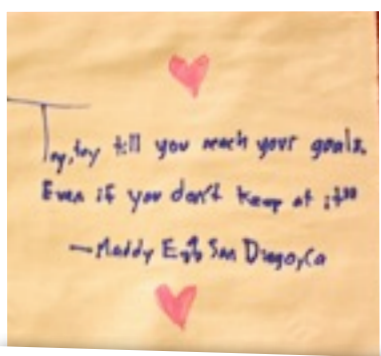 Try, try till you reach your goals.
Even if you don't keep at it!!!
— Maddy E. San Diego, Ca